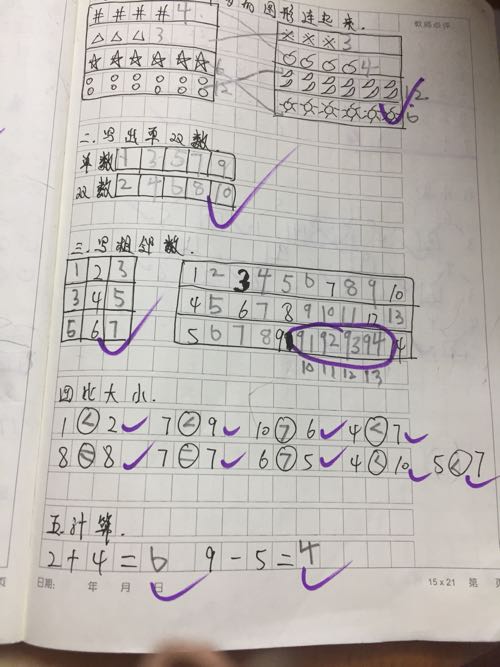 图形连起来.
教师点评
# # # # 4
× × × 3
△ △ △ 3
4
☆ ☆ ☆ ☆ ☆ ☆ 6
12
12
6
二.写出单双数.
单数 1 3 5 7 9
双数 2 4 6 8 10
三.写相邻数.
1 2 3
3 4 5
5 6 7
1 2 3 4 5 6 7 8 9 10
4 5 6 7 8 9 10 11 12 13
5 6 7 8 9 91 92 93 94 4
10 11 12 13
四比大小.
1 < 2 7 < 9 10 > 6 4 < 7
8 = 8 7 = 7 6 > 5 4 < 10 5 < 7
五.计算.
2 + 4 = 6 9 - 5 = 4
日期: 年 月 日 15 x 21 第 页